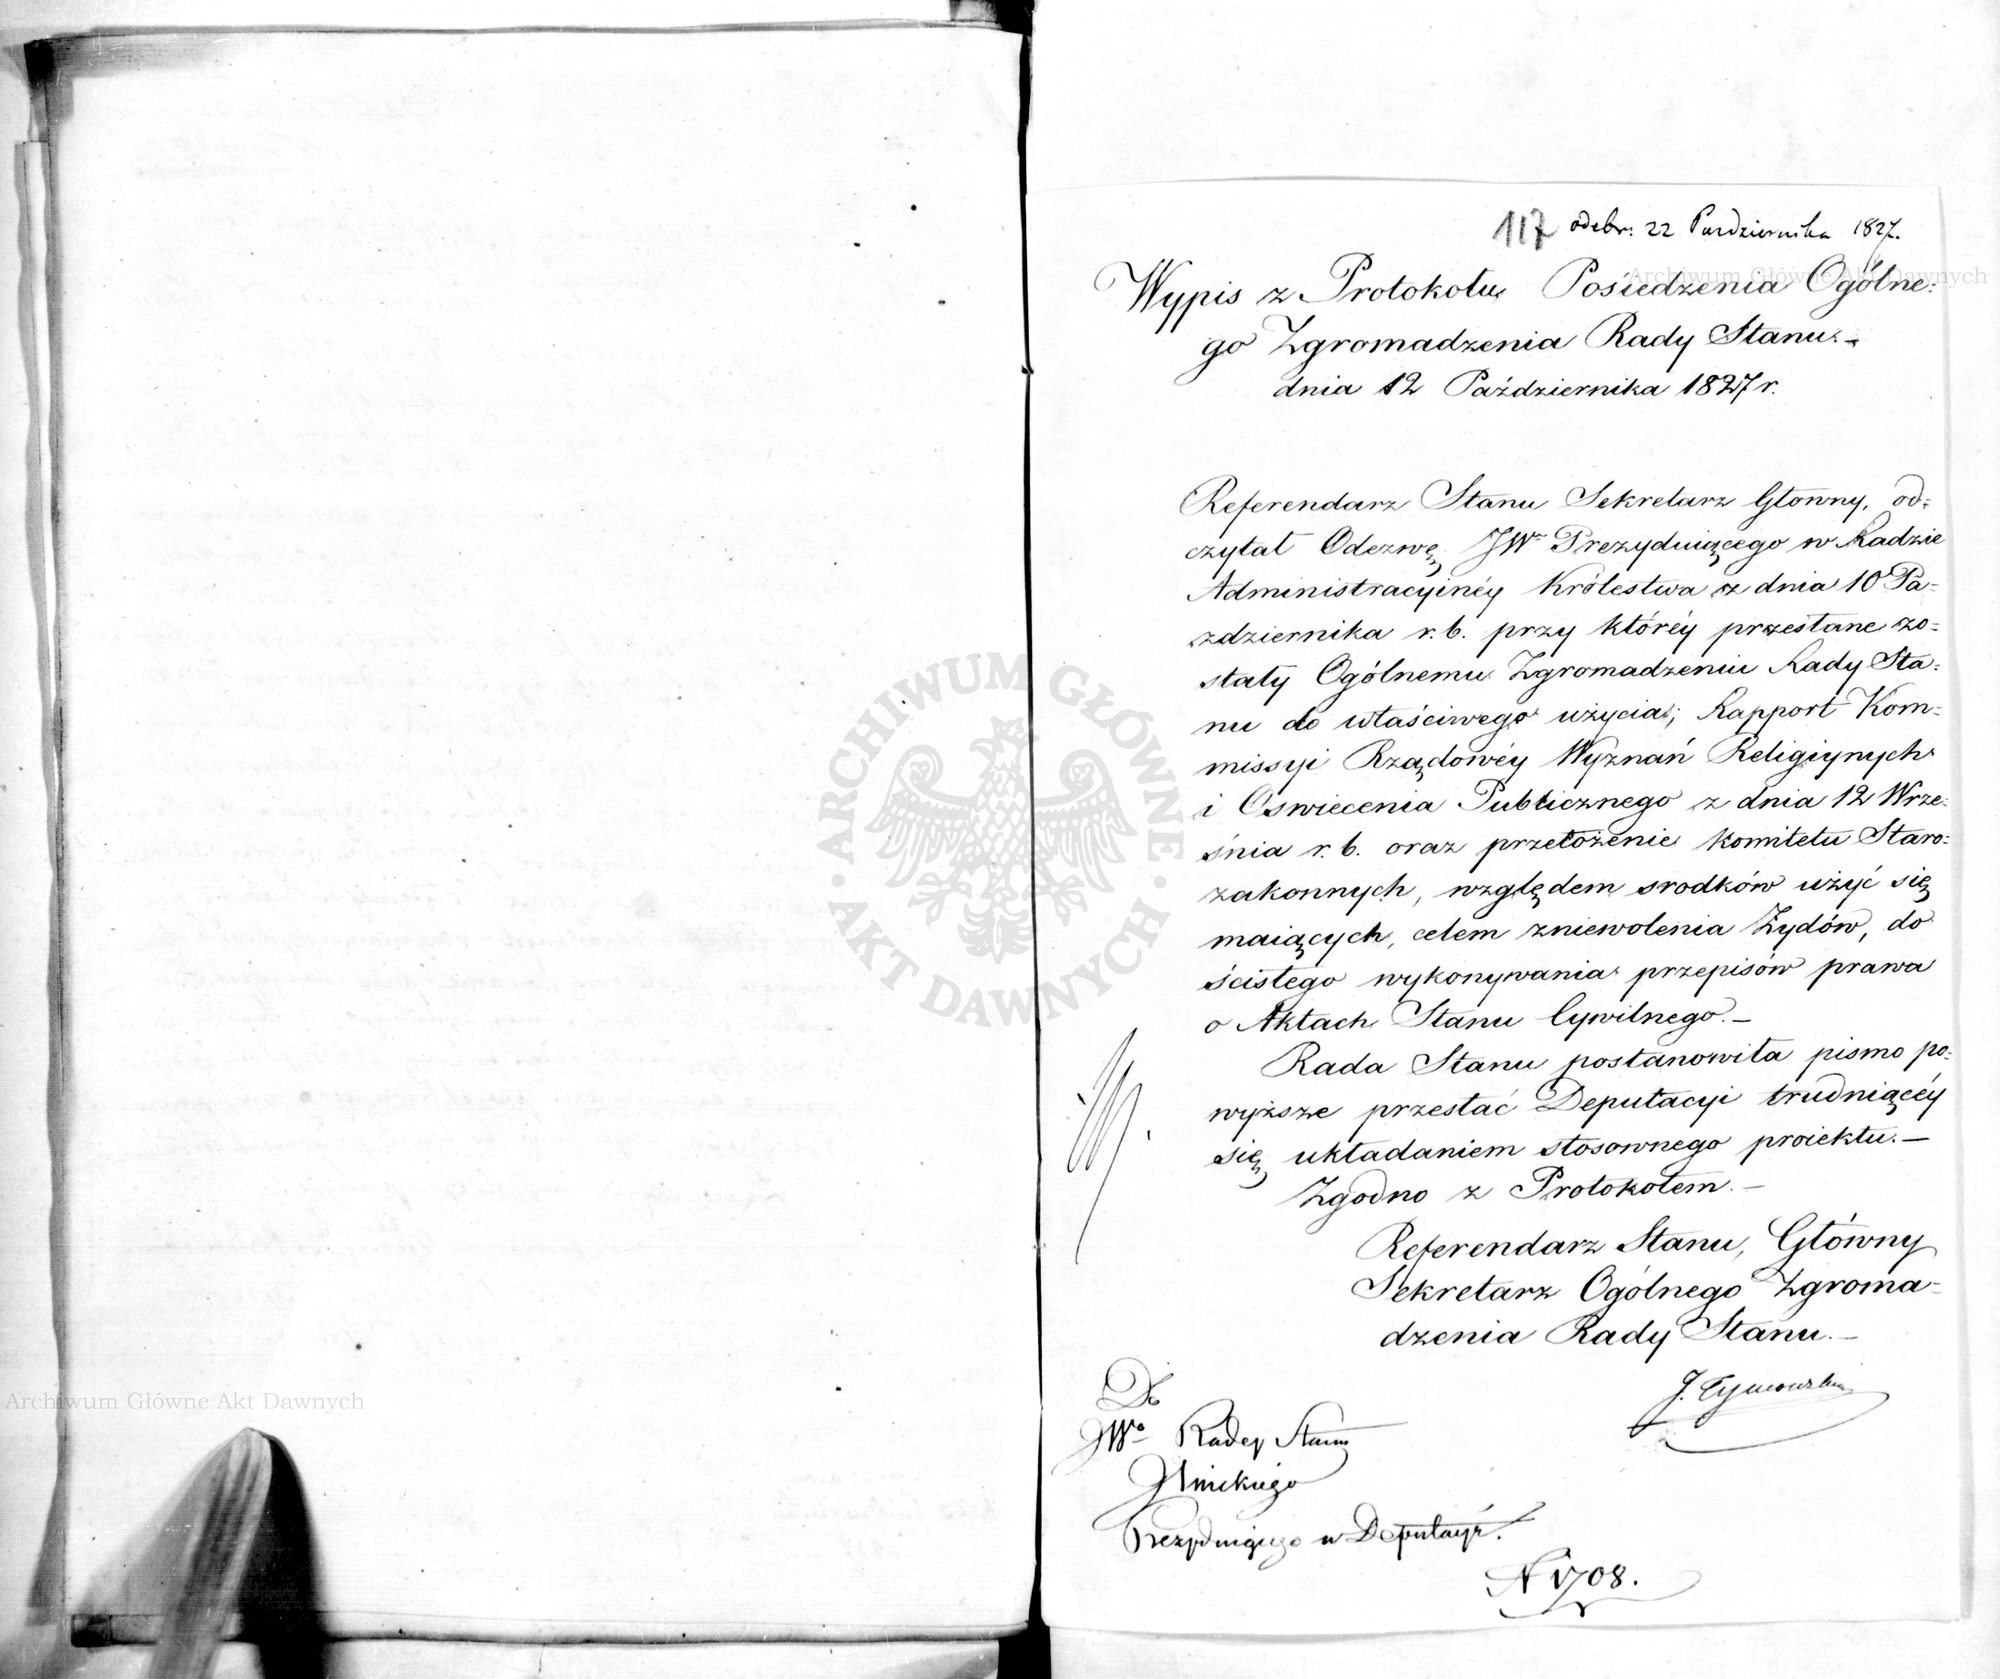 117 odebr: 22 Pazdziernika 1827.
Wypis z Protokołu Posiedzenia Ogólne:
go Zgromadzenia Rady Stanu.-
dnia 12 Października 1827 r.
Referendarz Stanu Sekretarz Główny, od:
czytał Odezwę JWº Prezyduiącego w Radzie
Administracyinéy Królestwa z dnia 10 Pa-
zdziernika r. b. przy któréy przesłane zo-
stały Ogólnemu Zgromadzeniu Rady Sta-
nu do właściwego użycia, Rapport Kom-
missyi Rządowéy Wyznań Religiynych
i Oswiecenia Publicznego z dnia 12 Wrze-
śnia r. b. oraz przełożenie Komitetu Staro-
zakonnych, względem srodków użyć się
maiących, celem zniewolenia Żydów, do
ścisłego wykonywania przepisów prawa
o Aktach Stanu Cywilnego.-
Rada Stanu postanowiła pismo po-
wyższe przesłać Deputacyi trudniącéy
się układaniem stosownego proiektu.-
Zgodno z Protokołem.-
Referendarz Stanu, Główny
Sekretarz Ogólnego Zgroma-
dzenia Rady Stanu.-
J. Tymowski
Do
JWº Radcy Stanu
Prezyduiącego w Deputacyi.
N 1708.
Archiwum Główne Akt Dawnych
Archiwum Główne Akt Dawnych
ARCHIWUM GŁÓWNE · AKT DAWNYCH ·